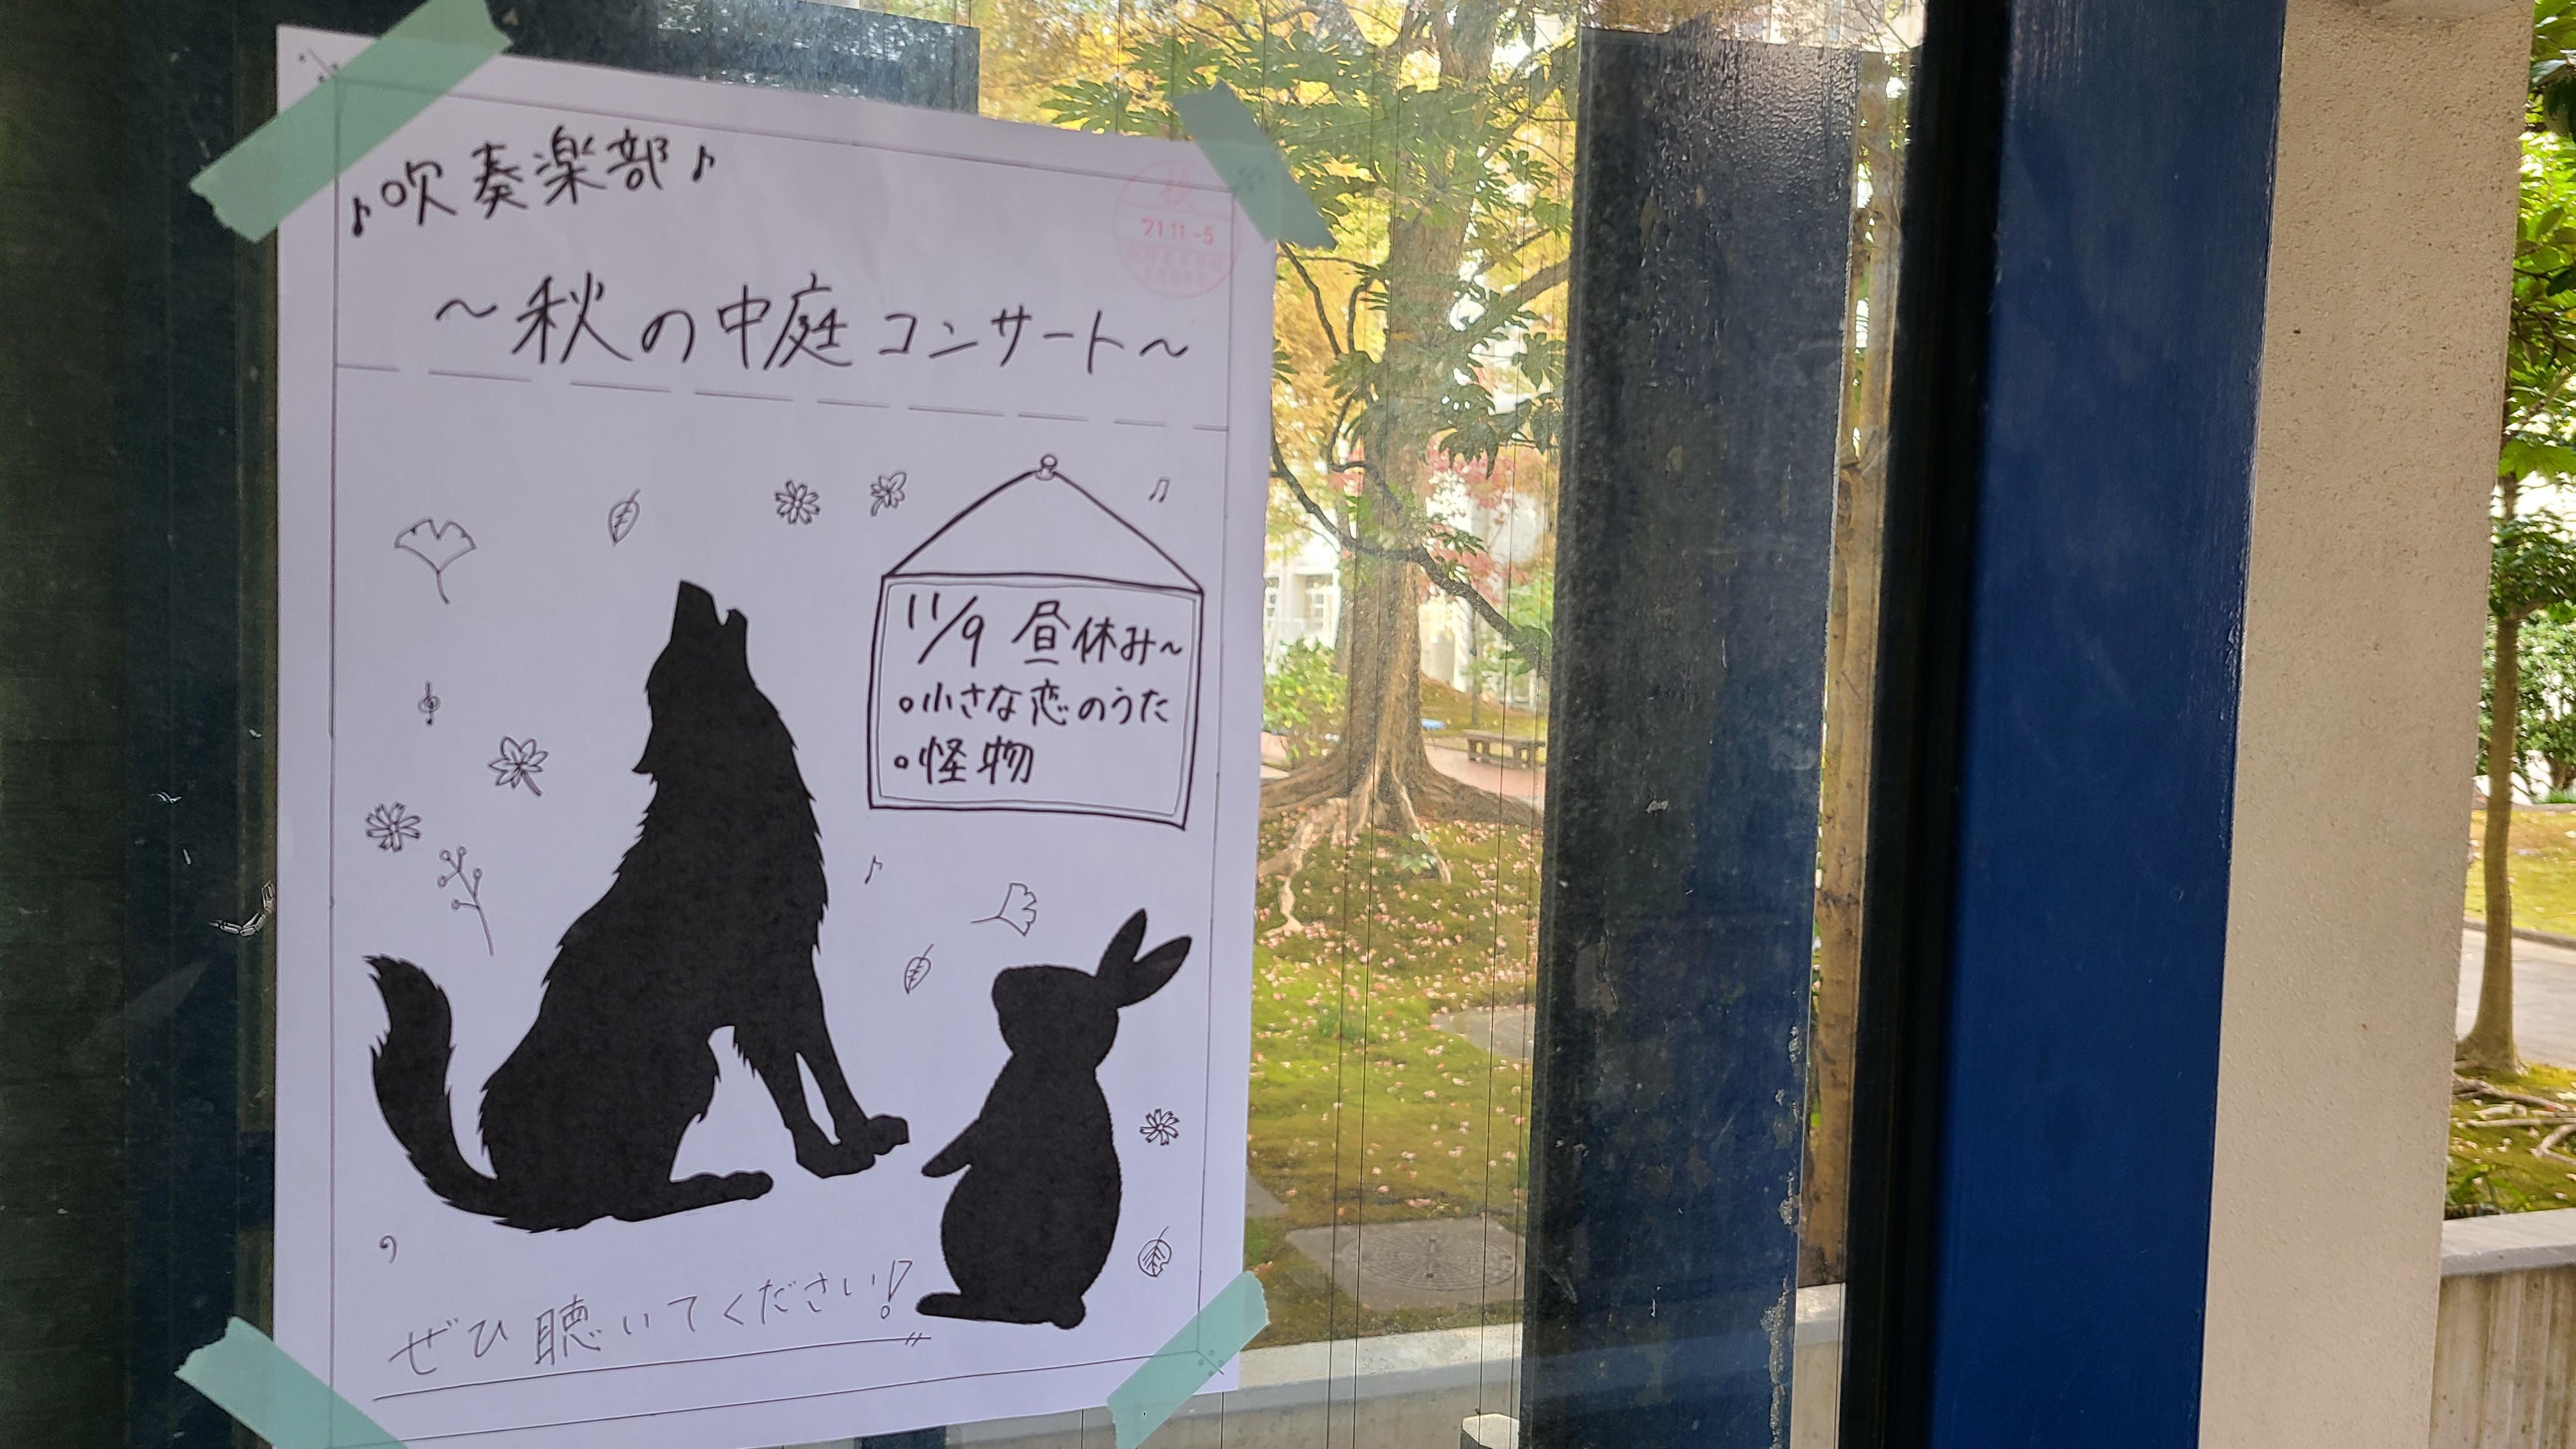 ♪吹奏楽部♪
～秋の中庭コンサート～
11/9 昼休み～
。小さな恋のうた
。怪物
ぜひ聴いてください!
検
'21.11.-5